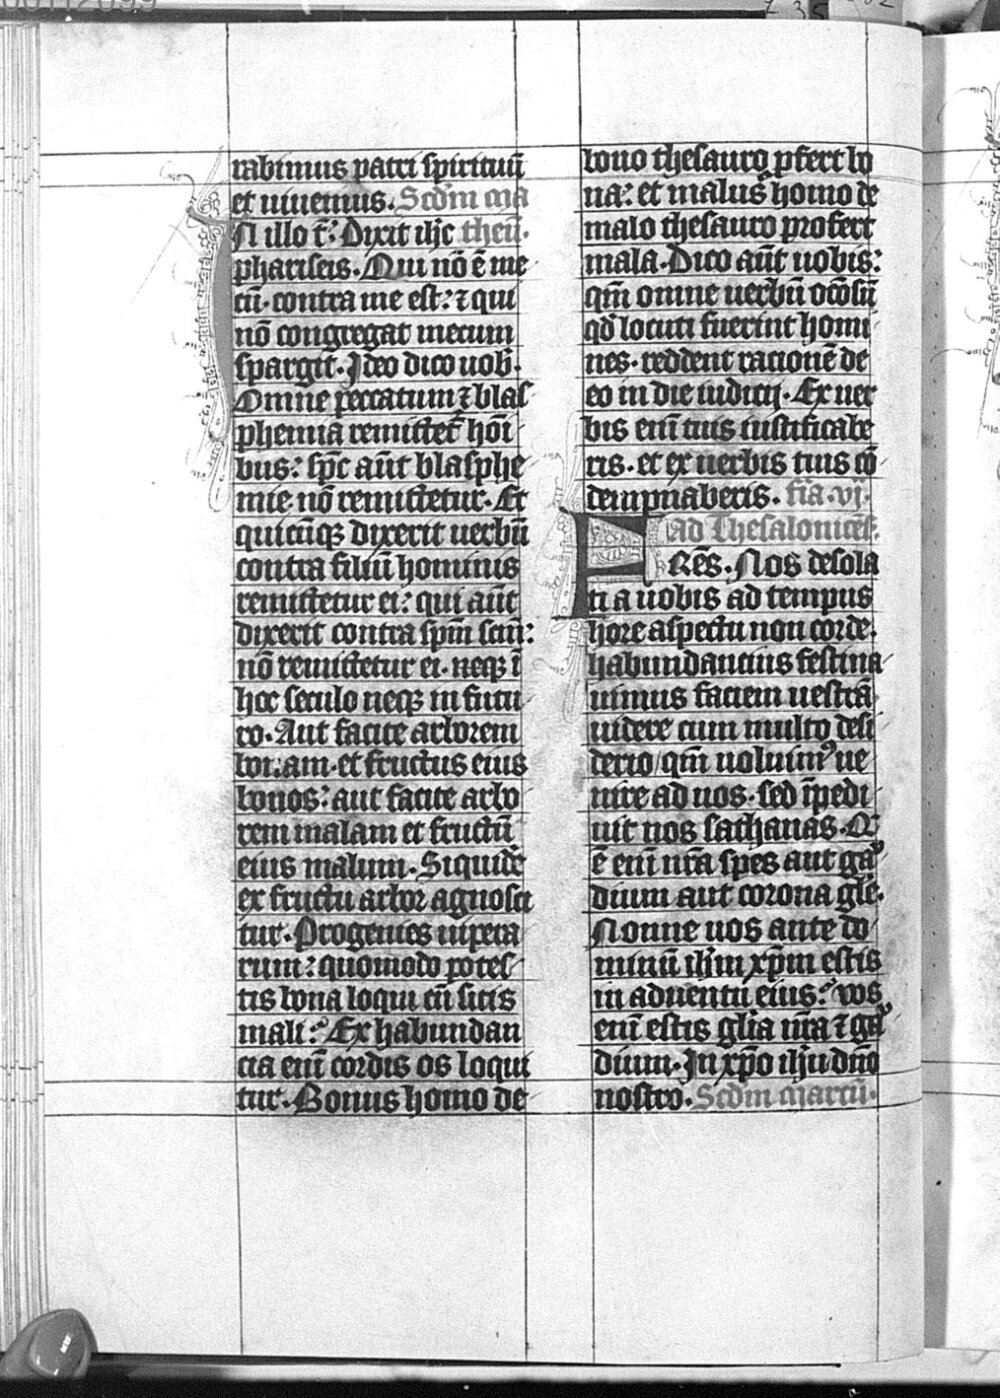 rabimus patri spirituū
et uiuemus. Scdm ma
IN illo t̄: Dixit ihc theū.
phariseis. Qui nō ē me
cū. contra me est: ⁊ qui
nō congregat mecum
spargit. Ideo dico uob̄.
Omne peccatum ⁊ blas
phemia remittet̄ hōi
bus: sp̄c aūt blasphe
mie nō remittetur. Et
quicūqꝫ dixerit uerbū
contra filiū hominis
remittetur ei: qui aūt
dixerit contra sp̄m scm̄:
nō remittetur ei. neqꝫ ī
hoc seculo neqꝫ in futu
ro. Aut facite arborem
bonam. et fructus eius
bonos: aut facite arbo
rem malam et fructū
eius malum. Siquidē
ex fructu arbor agnosci
tur. Progenies uipera
rum: quomodo potes
tis bona loqui cū sitis
mali: Ex habundan
cia enī cordis os loqui
tur. Bonus homo de
bono thesauro ꝓfert bo
na: et malus homo de
malo thesauro profert
mala. Dico aūt uobis:
qm̄ omne uerbū ocōsū
qd̄ locuti fuerint homi
nes. reddent racionē de
eo in die iudicij. Ex uer
bis enī tuis iustificabe
ris. et ex uerbis tuis cō
dempnaberis. fīa .vj.
ad Thesalonicēs.
FRēs. Nos desola
ti a uobis ad tempus
hore aspectu non corde.
habundancius festina
uimus faciem uestrā
uidere cum multo desi
derio / qm̄ uoluimꝰ ue
nire ad uos. sed īpedi
uit nos sathanas. Q̄
ē enī nr̄a spes aut gā
dium aut corona glē.
Nonne uos ante do
minū ihm xp̄m estis
in aduentu eius: vos
enī estis glīa nr̄a ⁊ gā
dium. In xp̄o ihu dn̄o
nostro. Scdm marcū.